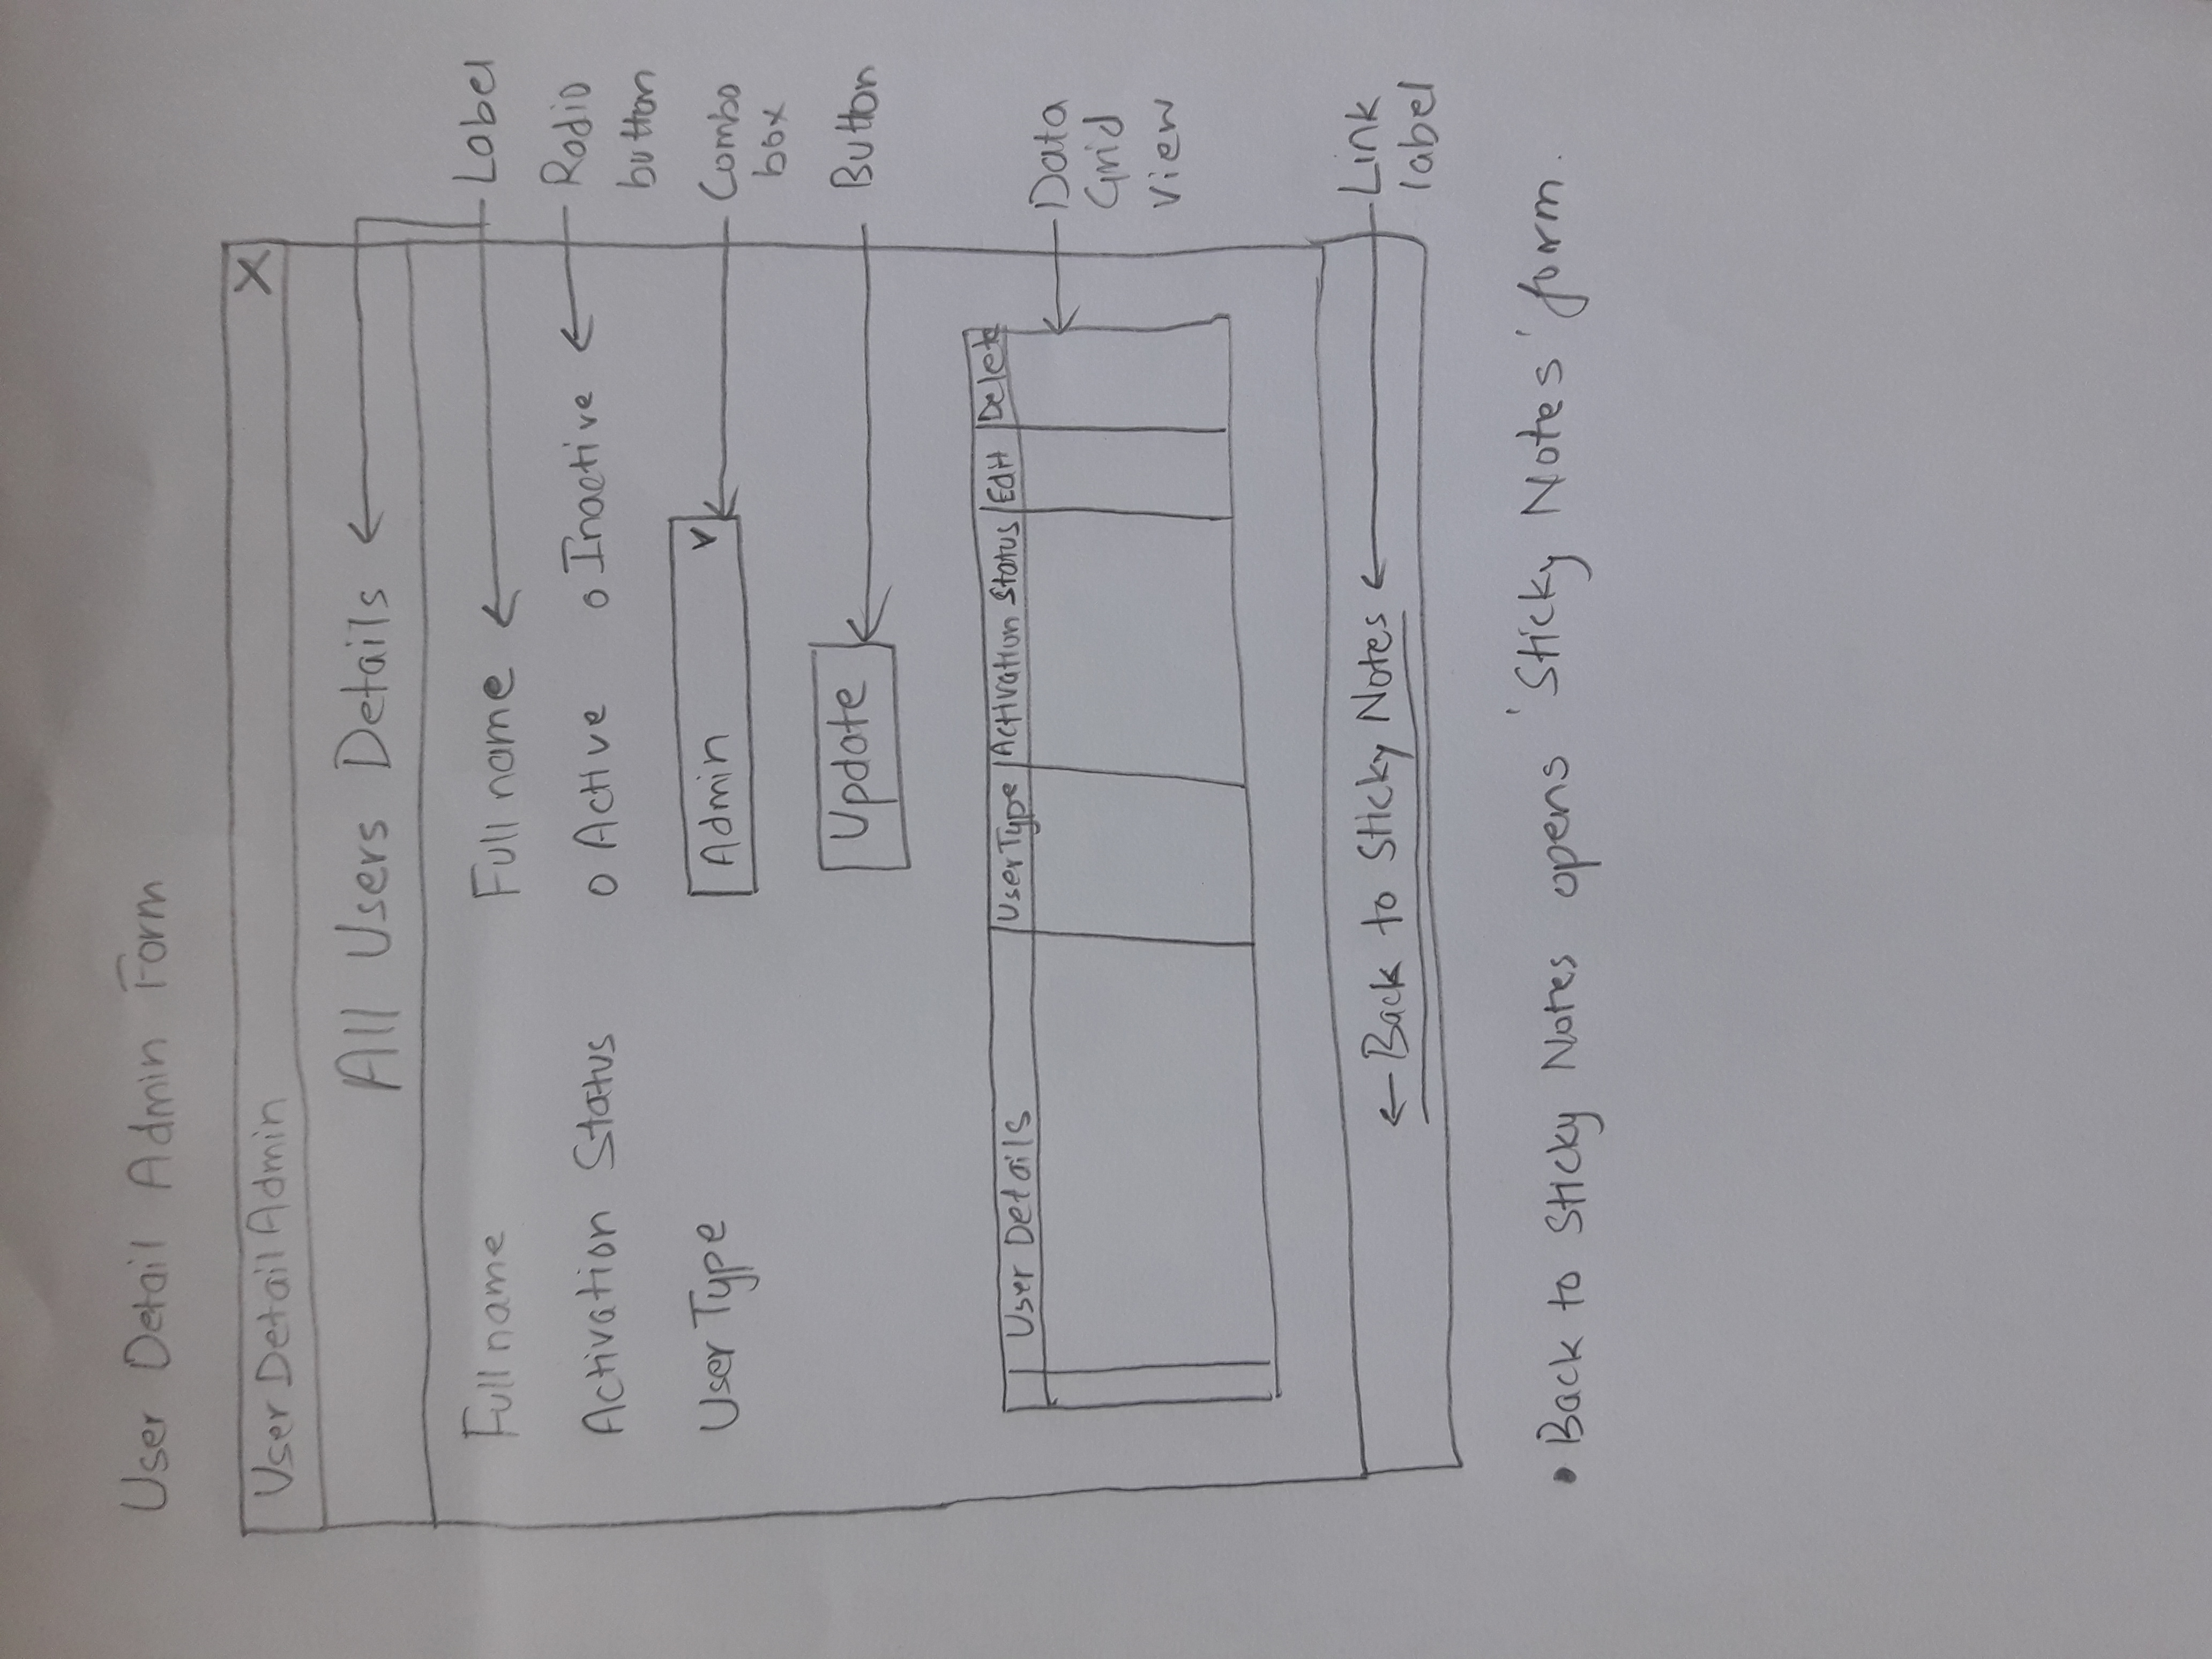 User Detail Admin Form
User Detail Admin X
All Users Details
Full name Full name Label
Activation Status Active Inactive Radio
button
User Type Admin Combo
box
Update Button
User Details User Type Activation Status Edit Delete
Data
Grid
View
← Back to Sticky Notes Link
label
• Back to Sticky Notes opens 'Sticky Notes' form.